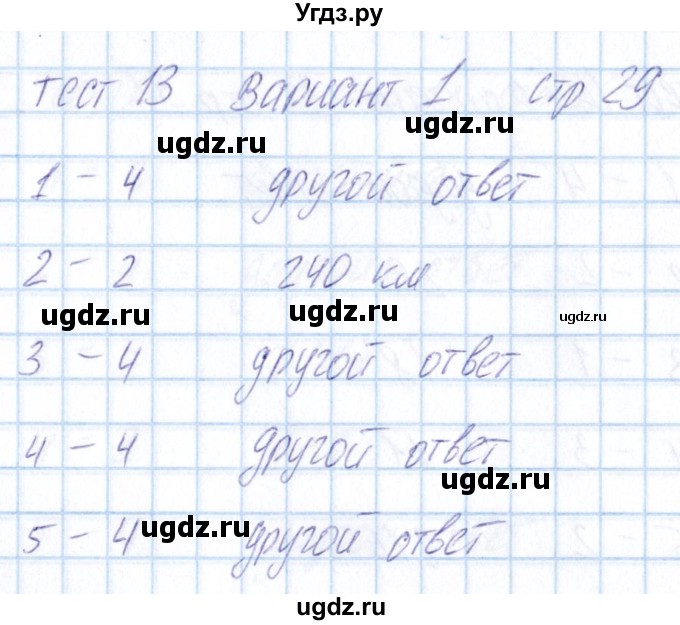 Угдз.ру
тест 13 Вариант 1 стр 29
ugdz.ru ugdz.ru
1 - 4 другой ответ
2 - 2 240 км
ugdz.ru ugdz.ru ugdz.ru
3 - 4 другой ответ
4 - 4 другой ответ
ugdz.ru
5 - 4 другой ответ
ugdz.ru
ugdz.ru